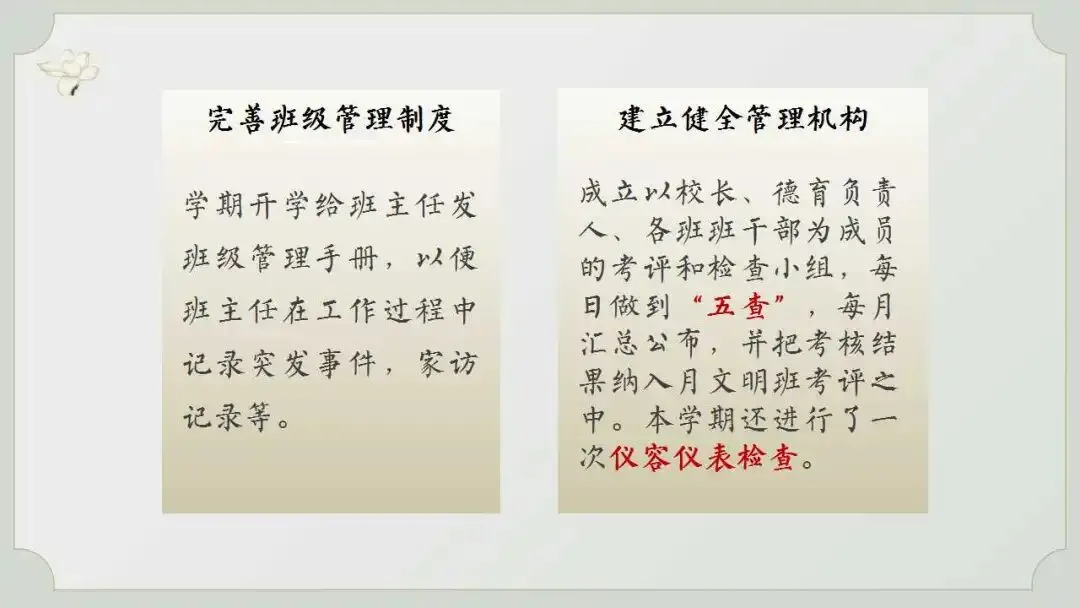 完善班级管理制度
学期开学给班主任发
班级管理手册，以便
班主任在工作过程中
记录突发事件，家访
记录等。
建立健全管理机构
成立以校长、德育负责
人、各班班干部为成员
的考评和检查小组，每
日做到“五查”，每月
汇总公布，并把考核结
果纳入月文明班考评之
中。本学期还进行了一
次仪容仪表检查。